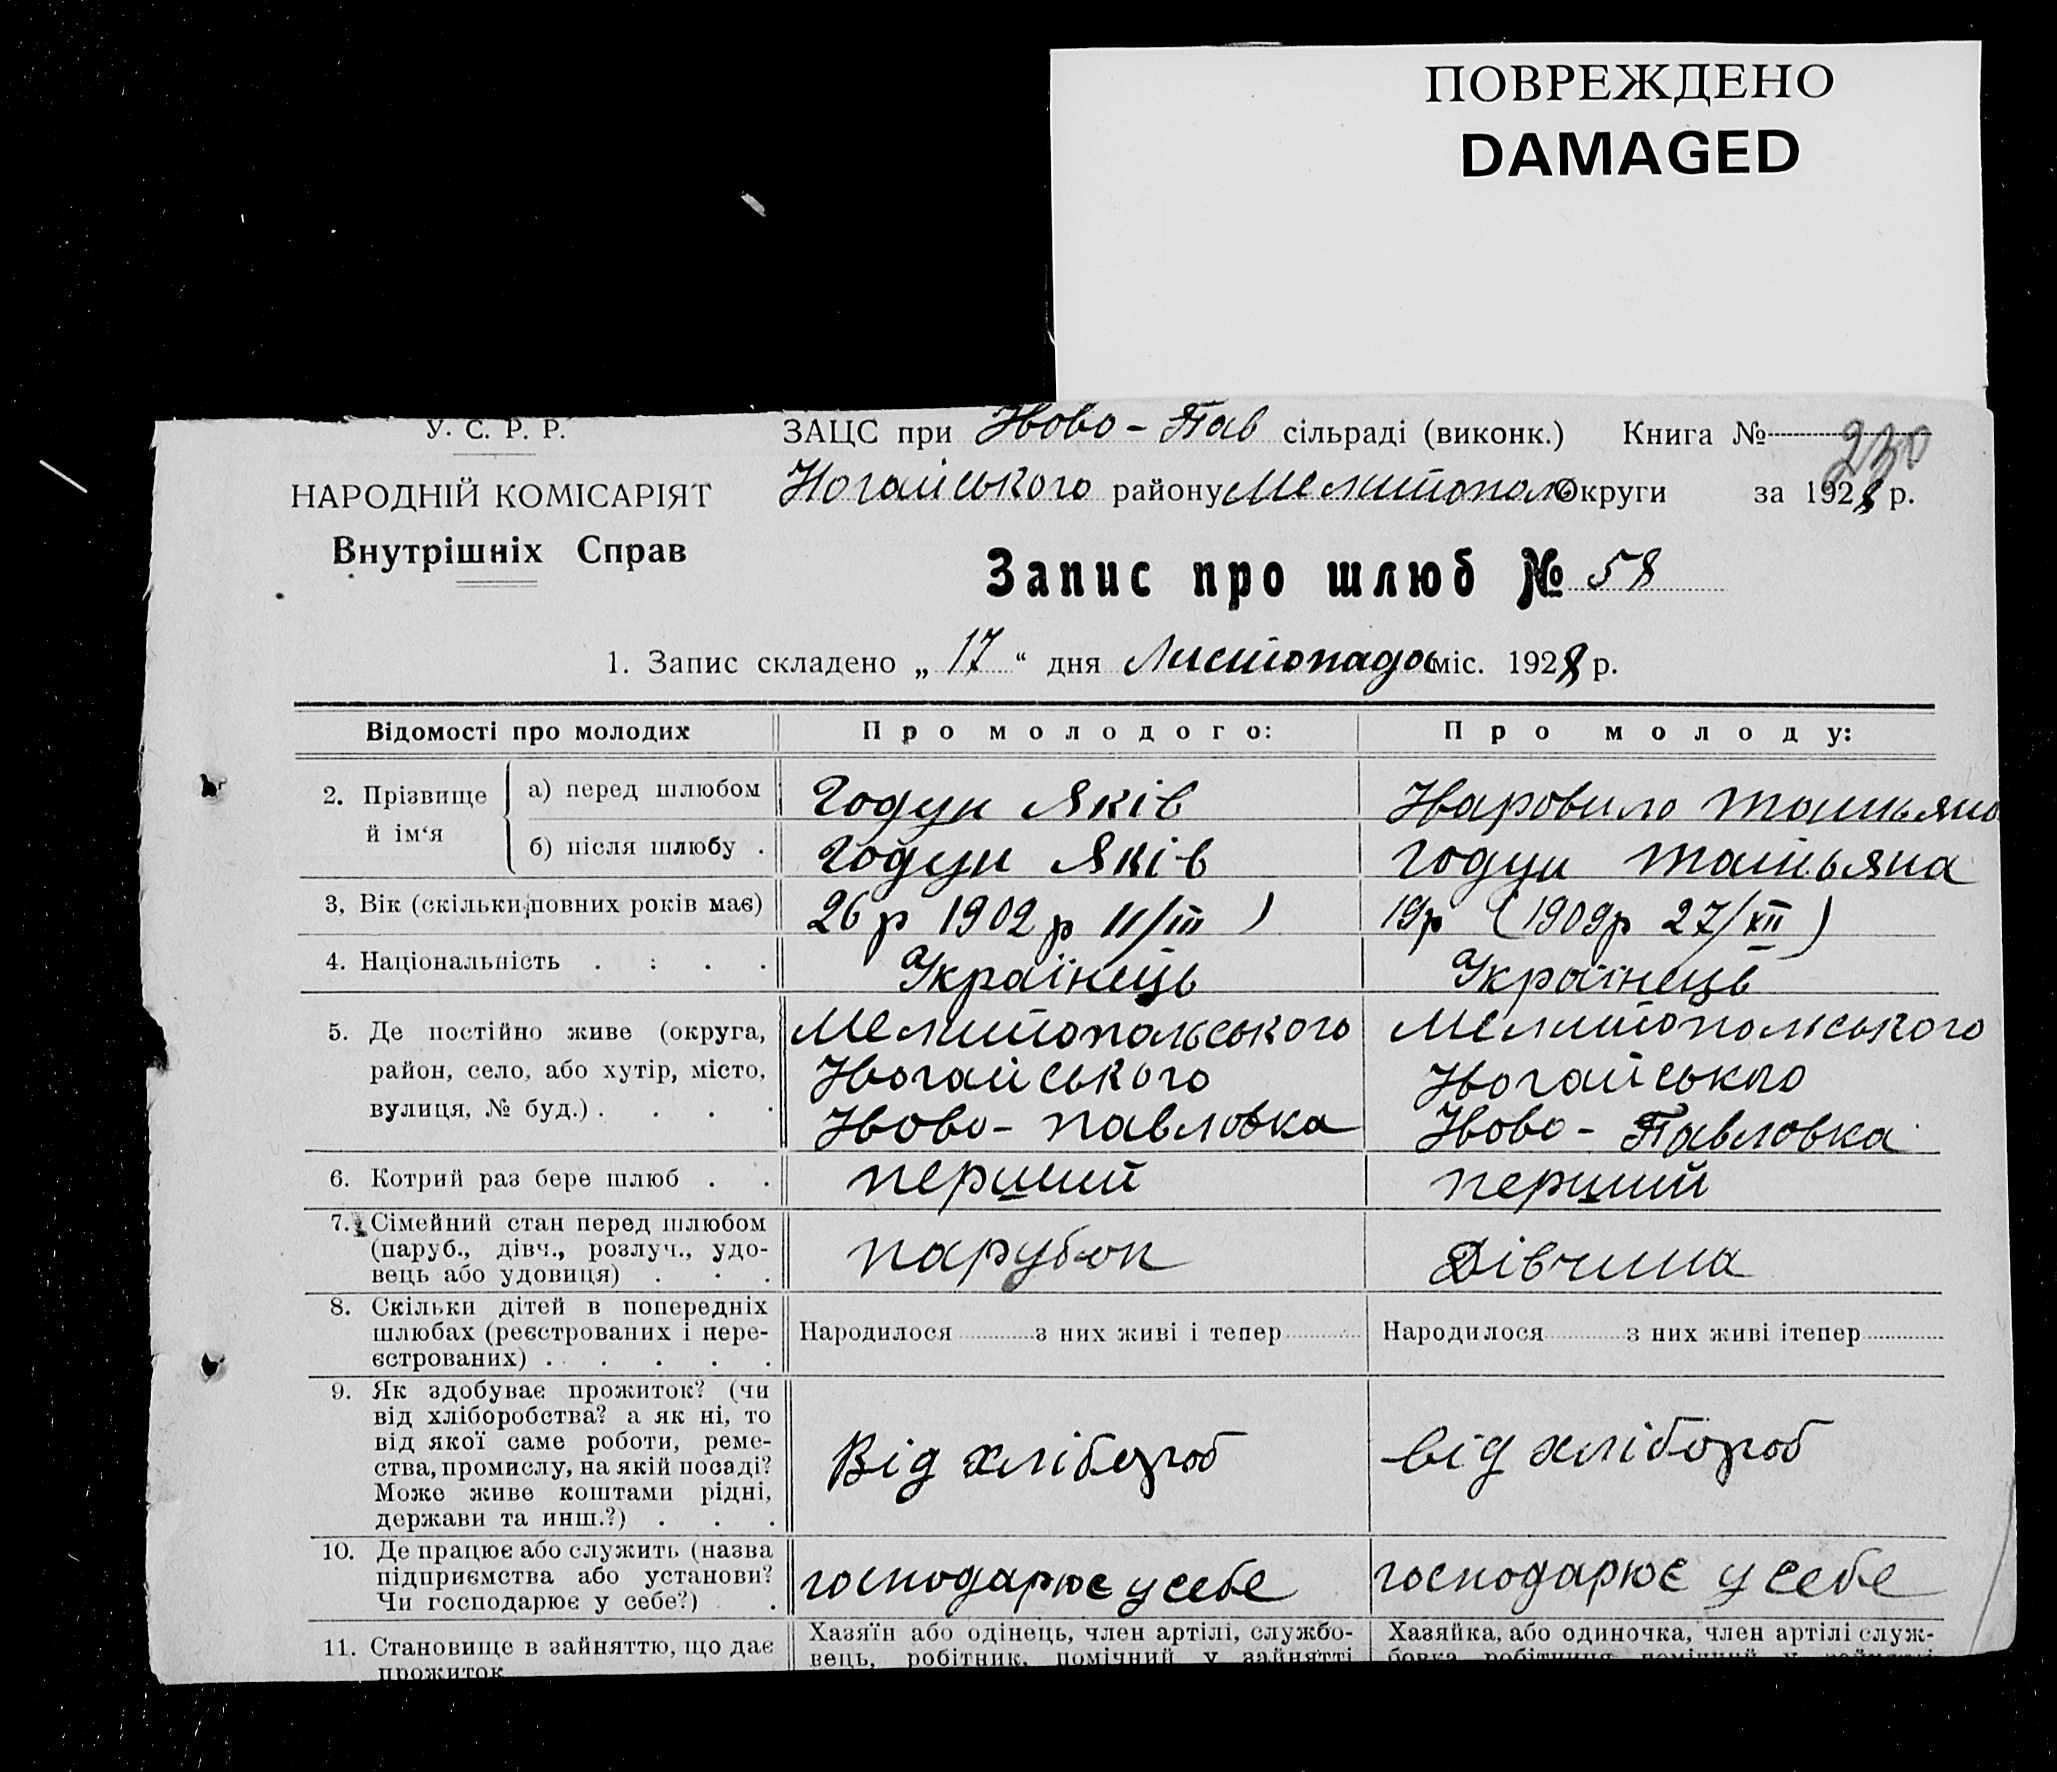 ПОВРЕЖДЕНО
DAMAGED
У. С. Р. Р.
НАРОДНІЙ КОМІСАРІЯТ
Внутрішніх Справ
ЗАЦС при Ново-Пав сільраді (виконк.) Книга №
230
Ногайського району Мелитопол Округи за 1928 р.
Запис про шлюб № 58
1. Запис складено „ 17 “ дня Листопада міс. 1928 р.
Відомості про молодих
Про молодого:
Про молоду:
2. Прізвище й ім‘я
а) перед шлюбом
Годун Яків
Наровило Татьяна
б) після шлюбу .
Годун Яків
Годун Татьяна
3, Вік (скільки повних років має)
26 р 1902 р 11/III )
19р (1909р 27/XII )
4. Національність . : . .
Українець
Українець
5. Де постійно живе (округа,
район, село, або хутір, місто,
вулиця, № буд.) . . . .
Мелитопольського
Ногайського
Ново-павловка
Мелитопольського
Ногайського
Ново-Павловка
6. Котрий раз бере шлюб . .
перший
перший
7. Сімейний стан перед шлюбом
(паруб., дівч., розлуч., удо-
вець або удовиця) . . .
парубок
Дівчина
8. Скільки дітей в попередніх
шлюбах (реєстрованих і нере-
єстрованих) . . . . .
Народилося з них живі і тепер
Народилося з них живі ітепер
9. Як здобуває прожиток? (чи
від хліборобства? а як ні, то
від якої саме роботи, реме-
ства, промислу, на якій посаді?
Може живе коштами рідні,
держави та инш.?) . . .
Від хлібороб
від хлібороб
10. Де працює або служить (назва
підприємства або установи?
Чи господарює у себе?) .
господарює у себе
господарює у себе
11. Становище в зайняттю, що дає
прожиток
Хазяїн або одінець, член артілі, службо-
вець, робітник, помічний у зайнятті
Хазяйка, або одиночка, член артілі служ-
бовка робітниця помічний у зайнятті